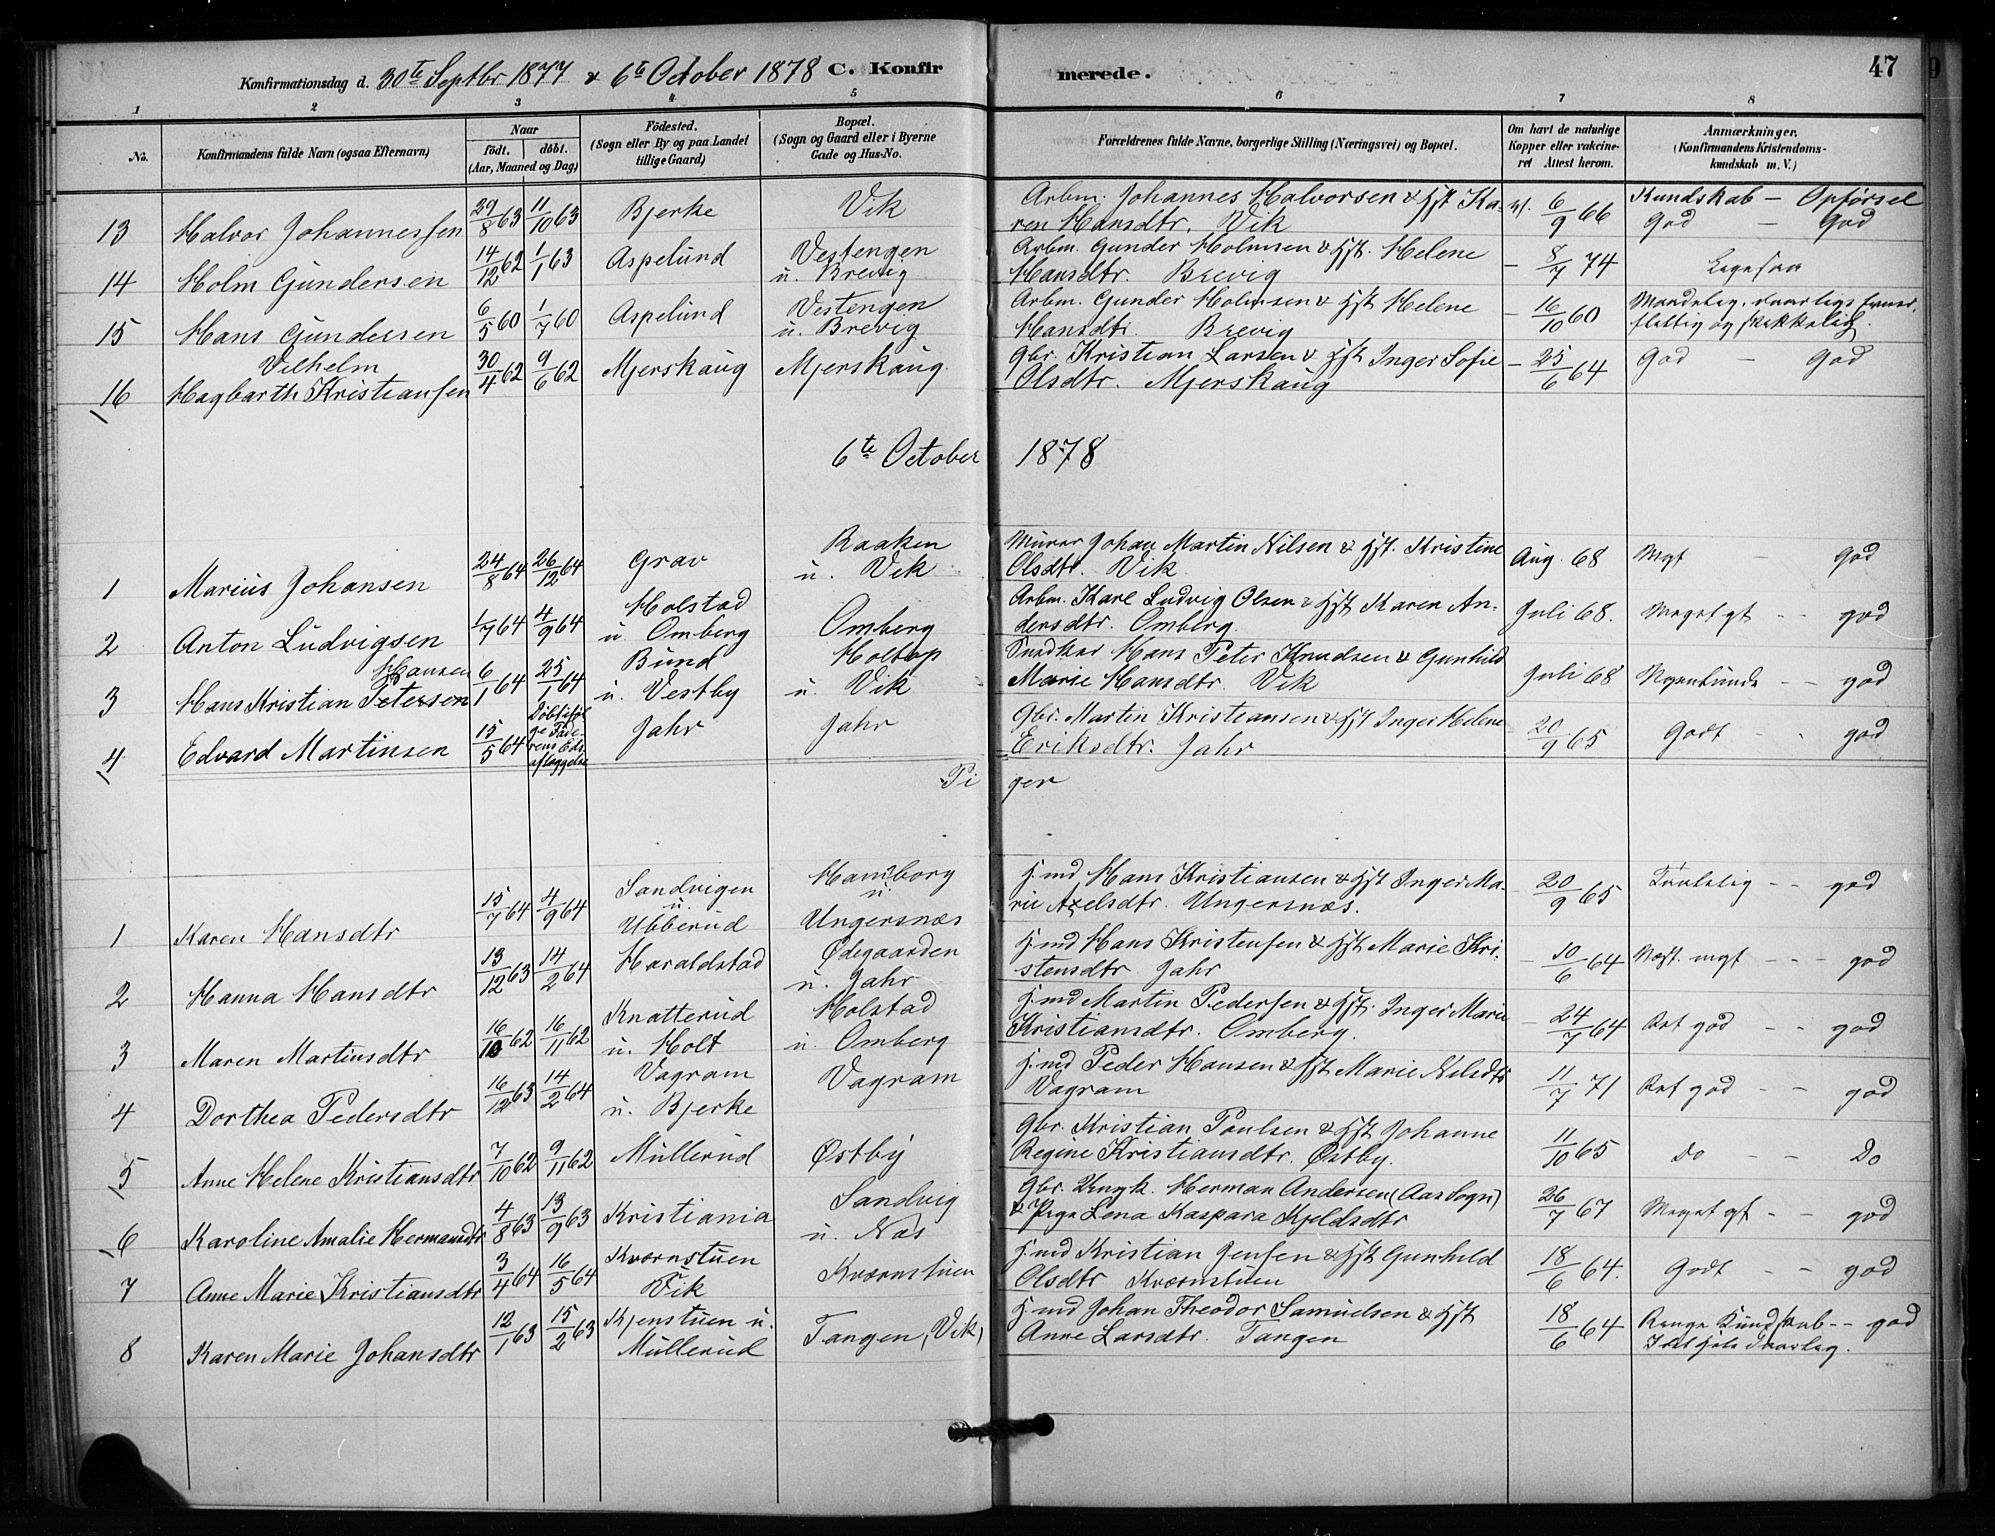 Konfirmationsdag d. 30te Septbr 1877 & 6te October 1878 C. Konfirmerede. 47
1 2 3 4 5 6 7 8
No. Konfirmandens fulde Navn (ogsaa Efternavn) Naar født. døbt. (Aar, Maaned og Dag) Fødested. (Sogn eller By og paa Landet tillige Gaard) Bopæl. (Sogn og Gaard eller i Byerne Gade og Hus-No. Forældrenes fulde Navne, borgerlige Stilling (Næringsvei) og Bopæl. Om havt de naturlige Kopper eller vakcineret Attest herom. Anmærkninger. (Konfirmandens Kristendomskundskab m. V.)
Kundskab - Opførsel
13 Halvor Johannessen 29/8 63 11/10 63 Bjerke Vik Arbm. Johannes Halvorsen & Hst Karen Hansdtr. Vik v. 6/9 66 God - God
14 Holm Gundersen 14/12 62 1/1 63 Aspelund Vestengen u. Brevig Arbm. Gunder Holmsen & Hst. Helene Hansdtr. Brevig - 8/7 74
15 Hans Gundersen 6/5 60 1/7 60 Aspelund Vestengen u. Brevig Arbm. Gunder Holmsen & Hst Helene Hansdtr. Brevig - 16/10 60 flittig og skikkelig.
16 Hagbarth Vilhelm Kristiansen 30/4 62 9/6 62 Mjerskaug Mjerskaug Gbr. Kristian Larsen & Hst Inger Sofie Olsdtr. Mjerskaug - 25/6 64 God - God
6te October 1878
1 Marius Johansen 24/8 64 26/12 64 Grav Raaken u. Vik Murer Johan Martin Nilsen & Hst. Kristine Olsdtr. Vik Aug. 68 Mgt - God
2 Anton Ludvigsen 1/7 64 4/9 64 Holstad u. Omberg Omberg Arbm. Karl Ludvig Olsen & Hst Karen Andersdtr. Omberg. Juli 68. Meget gt - - god
3 Hans Kristian Hansen Petersen 6/1 64 25/1 64 Bund u. Vestby Holtop u. Vik Snedker Hans Peter Knudsen & Gunhild Marie Hansdtr. Vik Juli 68 - - god
4 Edvard Martinsen 15/5 64 Døbt ifølge Faderens Eds aflæggelse Jahr Jahr Gbr. Martin Kristiansen & Hst Inger Helene Eriksdtr. Jahr 20/9 65 Godt - - god
Piger
1 Karen Hansdtr 15/7 64 4/9 64 Sandvigen u. Ubberud Hamborg u. Ungersnæs Hmd Hans Kristiansen & Hst Inger Marie Axelsdtr. Ungersnæs. - 20/9 65 Taalelig - - god
2 Hanna Hansdtr 13/12 63 14/2 64 Haraldstad Ødegaarden u. Jahr Hmd Hans Kristensen & Hst Marie Kristensdtr. Jahr - 10/6 64 Næst. mgt - - - god
3 Maren Martinsdtr 16/10 62 16/11 62 Knatterud u. Holt Holstad u. Omberg Hmd Martin Pedersen & Hst. Inger Marie Kristiansdtr. Omberg. - 24/7 64 Ret god - - god
4 Dorthea Pedersdtr 16/12 63 14/2 64 Vagram u. Bjerke Vagram Hmd Peder Hansen & Hst Marie Nilsdtr Vagram 11/7 71 Ret god - - god
5 Anne Helene Kristiansdtr 7/10 62 9/11 62 Müllerud Østby Gbr. Kristian Paulsen & Hst Johanne Regine Kristiansdtr. Østby. 11/10 65 Do - - Do
6 Karoline Amalie Hermansdtr 4/8 63 13/9 63 Kristiania Sandvig u. Næs Gbr. Ungk. Herman Andersen (Aas Sogn) & Pige Lena Kaspara Kjeldsdtr 26/7 67 Meget gt - - god
7 Anne Marie Kristiansdtr 3/4 64 16/5 64 Kværnstuen Vik Kværnstuen Hmd Kristian Jensen & Hst Gunhild Olsdtr Kværnstuen 18/6 64. Godt - - god
8 Karen Marie Johansdtr 12/1 63 15/2 63 Kjenstuen u. Müllerud Tangen (Vik) Hmd Johan Theodor Samuelsen & Hst Anne Larsdtr. Tangen 18/6 64 Kundskab - - god